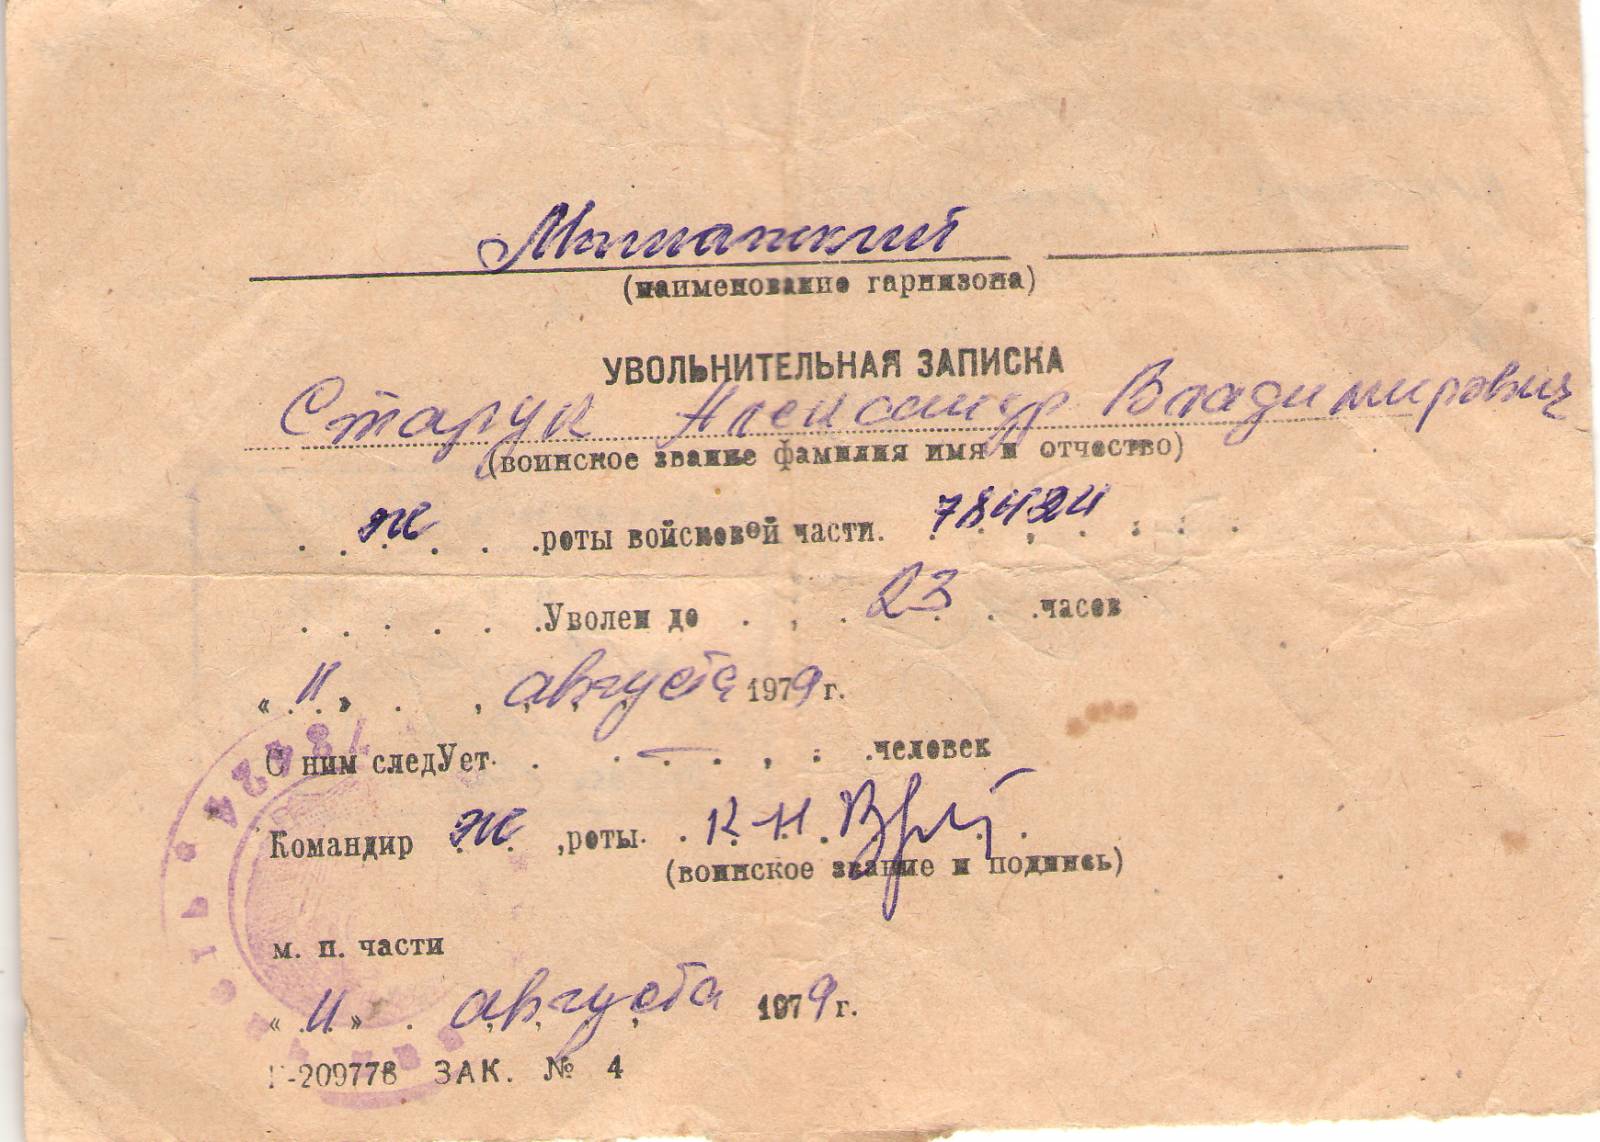 (наименование гарнизона)
УВОЛЬНИТЕЛЬНАЯ ЗАПИСКА
Старук Александр Владимирович
(воинское звание фамилия имя и отчество)
роты войсковой части. 78424
Уволен до 23 часов
« 11 » августа 1979 г.
С ним следУет — человек
Командир роты К-н
(воинское звание и подпись)
м. п. части
« 11 » августа 1979 г.
Г-209778 ЗАК. № 4
78424